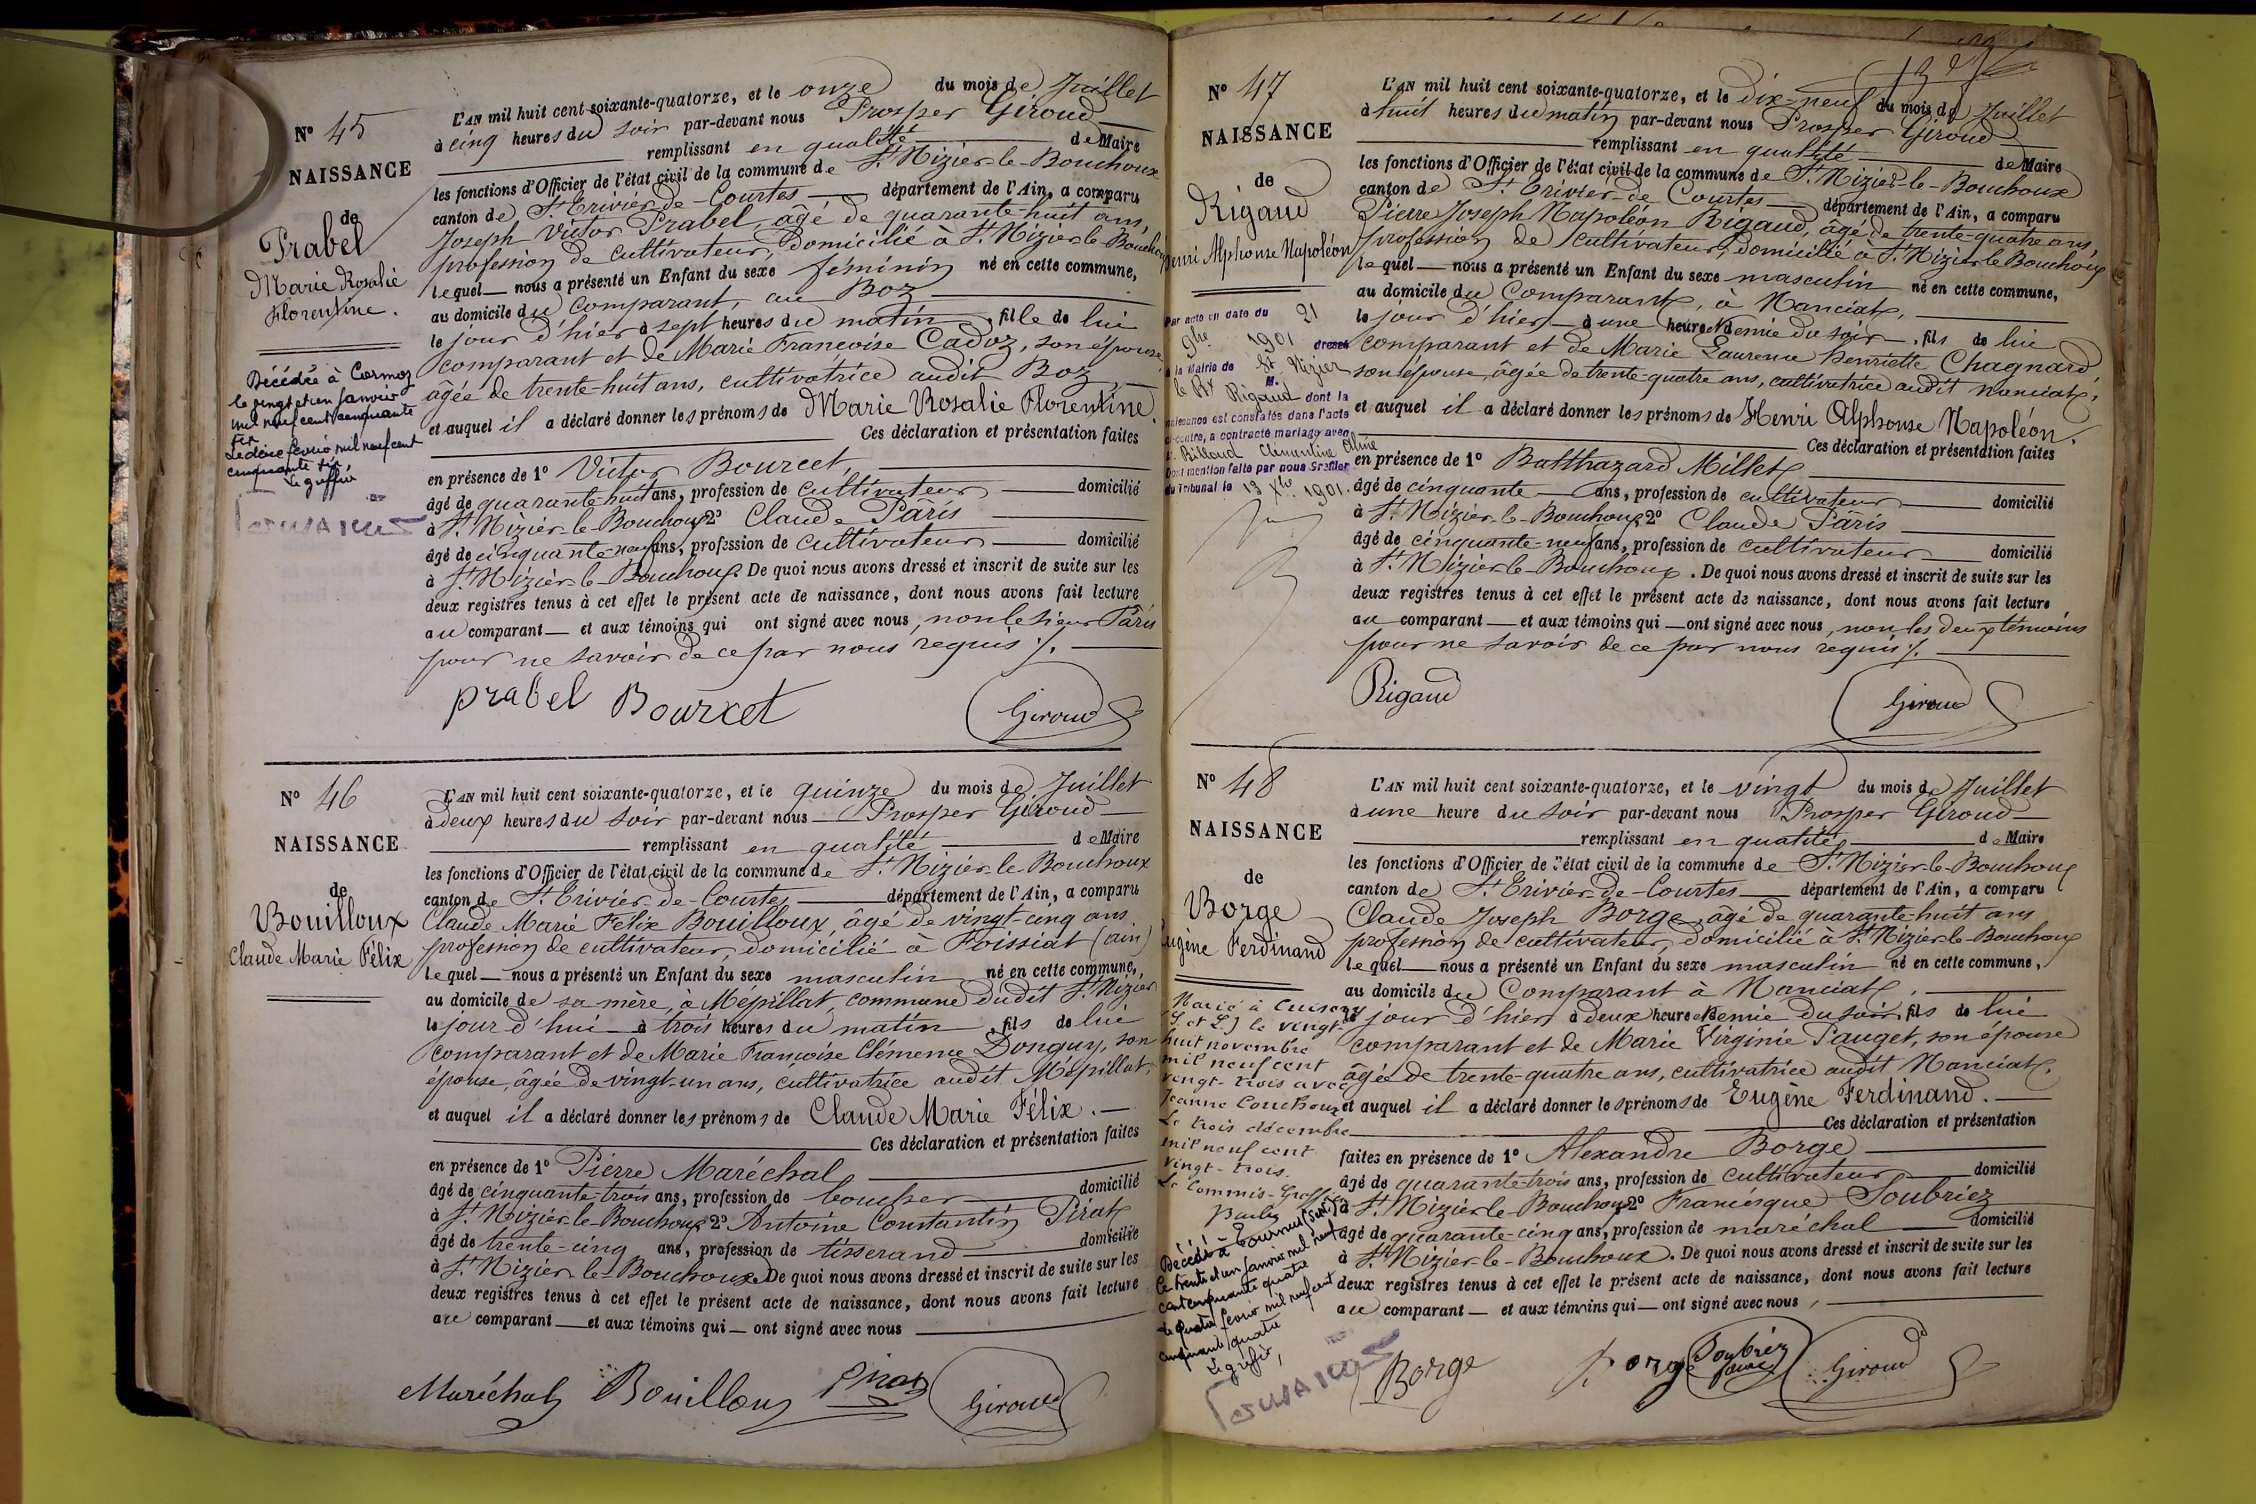 N° 45
NAISSANCE
de
Prabel
Marie Rosalie
Florentine.
Décédée à Cormoz
le vingt et un janvier
mil neuf cent cinquante
six
Le deux février mil neuf cent
cinquante six
Le greffier
L'AN mil huit cent soixante-quatorze, et le onze du mois de Juillet
à cinq heures du soir par-devant nous Prosper Giroud
remplissant en qualité de Maire
les fonctions d'Officier de l'état civil de la commune de St Nizier-le-Bouchoux
canton de St Trivier-de-Courtes département de l'Ain, a comparu
Joseph Victor Prabel, âgé de quarante-huit ans,
profession de cultivateur, domicilié à St Nizier-le-Bouchoux
lequel nous a présenté un Enfant du sexe féminin né en cette commune,
au domicile du Comparant, au Boz
le jour d'hier à sept heures du matin, fille de lui
comparant et de Marie Françoise Cadoz, son épouse,
âgée de trente-huit ans, cultivatrice audit Boz,
et auquel il a déclaré donner les prénoms de Marie Rosalie Florentine
Ces déclaration et présentation faites
en présence de 1° Victor Bourcet,
âgé de quarante-huit ans, profession de cultivateur domicilié
à St Nizier-le-Bouchoux 2° Claude Pâris
âgé de cinquante-neuf ans, profession de cultivateur domicilié
à St Nizier-le-Bouchoux. De quoi nous avons dressé et inscrit de suite sur les
deux registres tenus à cet effet le présent acte de naissance, dont nous avons fait lecture
au comparant et aux témoins qui ont signé avec nous, non le sieur Pâris
pour ne savoir de ce par nous requis /.
Prabel Bourcet Giroud
N° 46
NAISSANCE
de
Bouilloux
Claude Marie Félix
L'AN mil huit cent soixante-quatorze, et le quinze du mois de Juillet
à deux heures du soir par-devant nous Prosper Giroud
remplissant en qualité de Maire
les fonctions d'Officier de l'état civil de la commune de St Nizier-le-Bouchoux
canton de St Trivier-de-Courtes département de l'Ain, a comparu
Claude Marie Félix Bouilloux, âgé de vingt-cinq ans
profession de cultivateur, domicilié à Foissiat (ain)
lequel nous a présenté un Enfant du sexe masculin né en cette commune,
au domicile de sa mère, à Mépillat, commune dudit St Nizier
le jour d'hui à trois heures du matin, fils de lui
comparant et de Marie Françoise Clémence Donguy, son
épouse, âgée de vingt-un ans, cultivatrice audit Mépillat,
et auquel il a déclaré donner les prénoms de Claude Marie Félix.
Ces déclaration et présentation faites
en présence de 1° Pierre Maréchal
âgé de cinquante-trois ans, profession de boucher domicilié
à St Nizier-le-Bouchoux 2° Antoine Constantin Pirat
âgé de trente-cinq ans, profession de tisserand domicilié
à St Nizier-le-Bouchoux De quoi nous avons dressé et inscrit de suite sur les
deux registres tenus à cet effet le présent acte de naissance, dont nous avons fait lecture
au comparant et aux témoins qui ont signé avec nous
Maréchal Bouilloux Pirat Giroud
N° 47
NAISSANCE
de
Rigaud
Henri Alphonse Napoléon
Par acte en date du 21
9bre 1901 dressé
à la Mairie de St Nizier
le Bx M. Rigaud dont la
naissance est constatée dans l'acte
ci-contre, a contracté mariage avec
Billoud Clémentine Aline
Dont mention faite par nous Greffier
du Tribunal le 13 Xbre 1901.
L'AN mil huit cent soixante-quatorze, et le dix-neuf du mois de Juillet
à huit heures du matin par-devant nous Prosper Giroud
remplissant en qualité de Maire
les fonctions d'Officier de l'état civil de la commune de St Nizier-le-Bouchoux
canton de St Trivier-de-Courtes département de l'Ain, a comparu
Pierre Joseph Napoléon Rigaud, âgé de trente-quatre ans,
profession de cultivateur, domicilié à St Nizier le Bouchoux
lequel nous a présenté un Enfant du sexe masculin né en cette commune,
au domicile du Comparant, à Nanciat,
le jour d'hier à une heure et demie du soir, fils de lui
comparant et de Marie Laurence Henriette Chagnard,
son épouse, âgée de trente-quatre ans, cultivatrice audit Nanciat,
et auquel il a déclaré donner les prénoms de Henri Alphonse Napoléon.
Ces déclaration et présentation faites
en présence de 1° Balthazard Millet
âgé de cinquante ans, profession de cultivateur domicilié
à St Nizier-le-Bouchoux 2° Claude Pâris
âgé de cinquante-neuf ans, profession de cultivateur domicilié
à St Nizier-le-Bouchoux. De quoi nous avons dressé et inscrit de suite sur les
deux registres tenus à cet effet le présent acte de naissance, dont nous avons fait lecture
au comparant et aux témoins qui ont signé avec nous, non les deux témoins
pour ne savoir de ce par nous requis /.
Rigaud Giroud
N° 48
NAISSANCE
de
Borge
Eugène Ferdinand
Marié à Cuisery
(S. et L.) le vingt-
huit novembre
mil neuf cent
vingt-trois avec
Jeanne Couchoux
Le trois décembre
mil neuf cent
vingt-trois.
Le Commis-Greffier
Décédé à Tournus (S et L)
le trente et un janvier mil neuf
cent cinquante quatre
Le quatre février mil neuf cent
cinquante quatre
Le greffier,
L'AN mil huit cent soixante-quatorze, et le vingt du mois de Juillet
à une heure du soir par-devant nous Prosper Giroud
remplissant en qualité de Maire
les fonctions d'Officier de l'état civil de la commune de St Nizier-le-Bouchoux
canton de St Trivier-de-Courtes département de l'Ain, a comparu
Claude Joseph Borge, âgé de quarante-huit ans
profession de cultivateur, domicilié à St Nizier-le-Bouchoux
lequel nous a présenté un Enfant du sexe masculin né en cette commune,
au domicile du Comparant à Nanciat,
le jour d'hier à deux heures et demie du soir fils de lui
comparant et de Marie Virginie Pauget, son épouse
âgée de trente-quatre ans, cultivatrice audit Nanciat.
et auquel il a déclaré donner les prénoms de Eugène Ferdinand.
Ces déclaration et présentation
faites en présence de 1° Alexandre Borge
âgé de quarante-trois ans, profession de cultivateur domicilié
à St Nizier-le-Bouchoux 2° Francisque Soubriez
âgé de quarante-cinq ans, profession de maréchal domicilié
à St Nizier-le-Bouchoux. De quoi nous avons dressé et inscrit de suite sur les
deux registres tenus à cet effet le présent acte de naissance, dont nous avons fait lecture
au comparant et aux témoins qui ont signé avec nous,
Borge Borge Soubriez Giroud